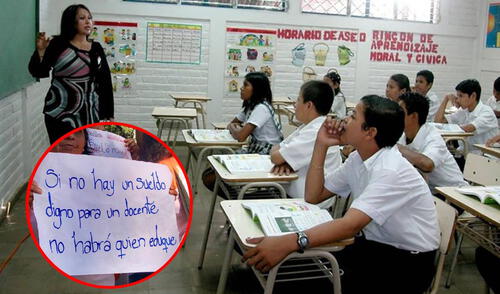 HORARIO DE ASEO
RINCON DE
APRENDIZAJE
MORAL Y CIVICA
Si no hay un sueldo
digno para un docente
no habrá quien eduque